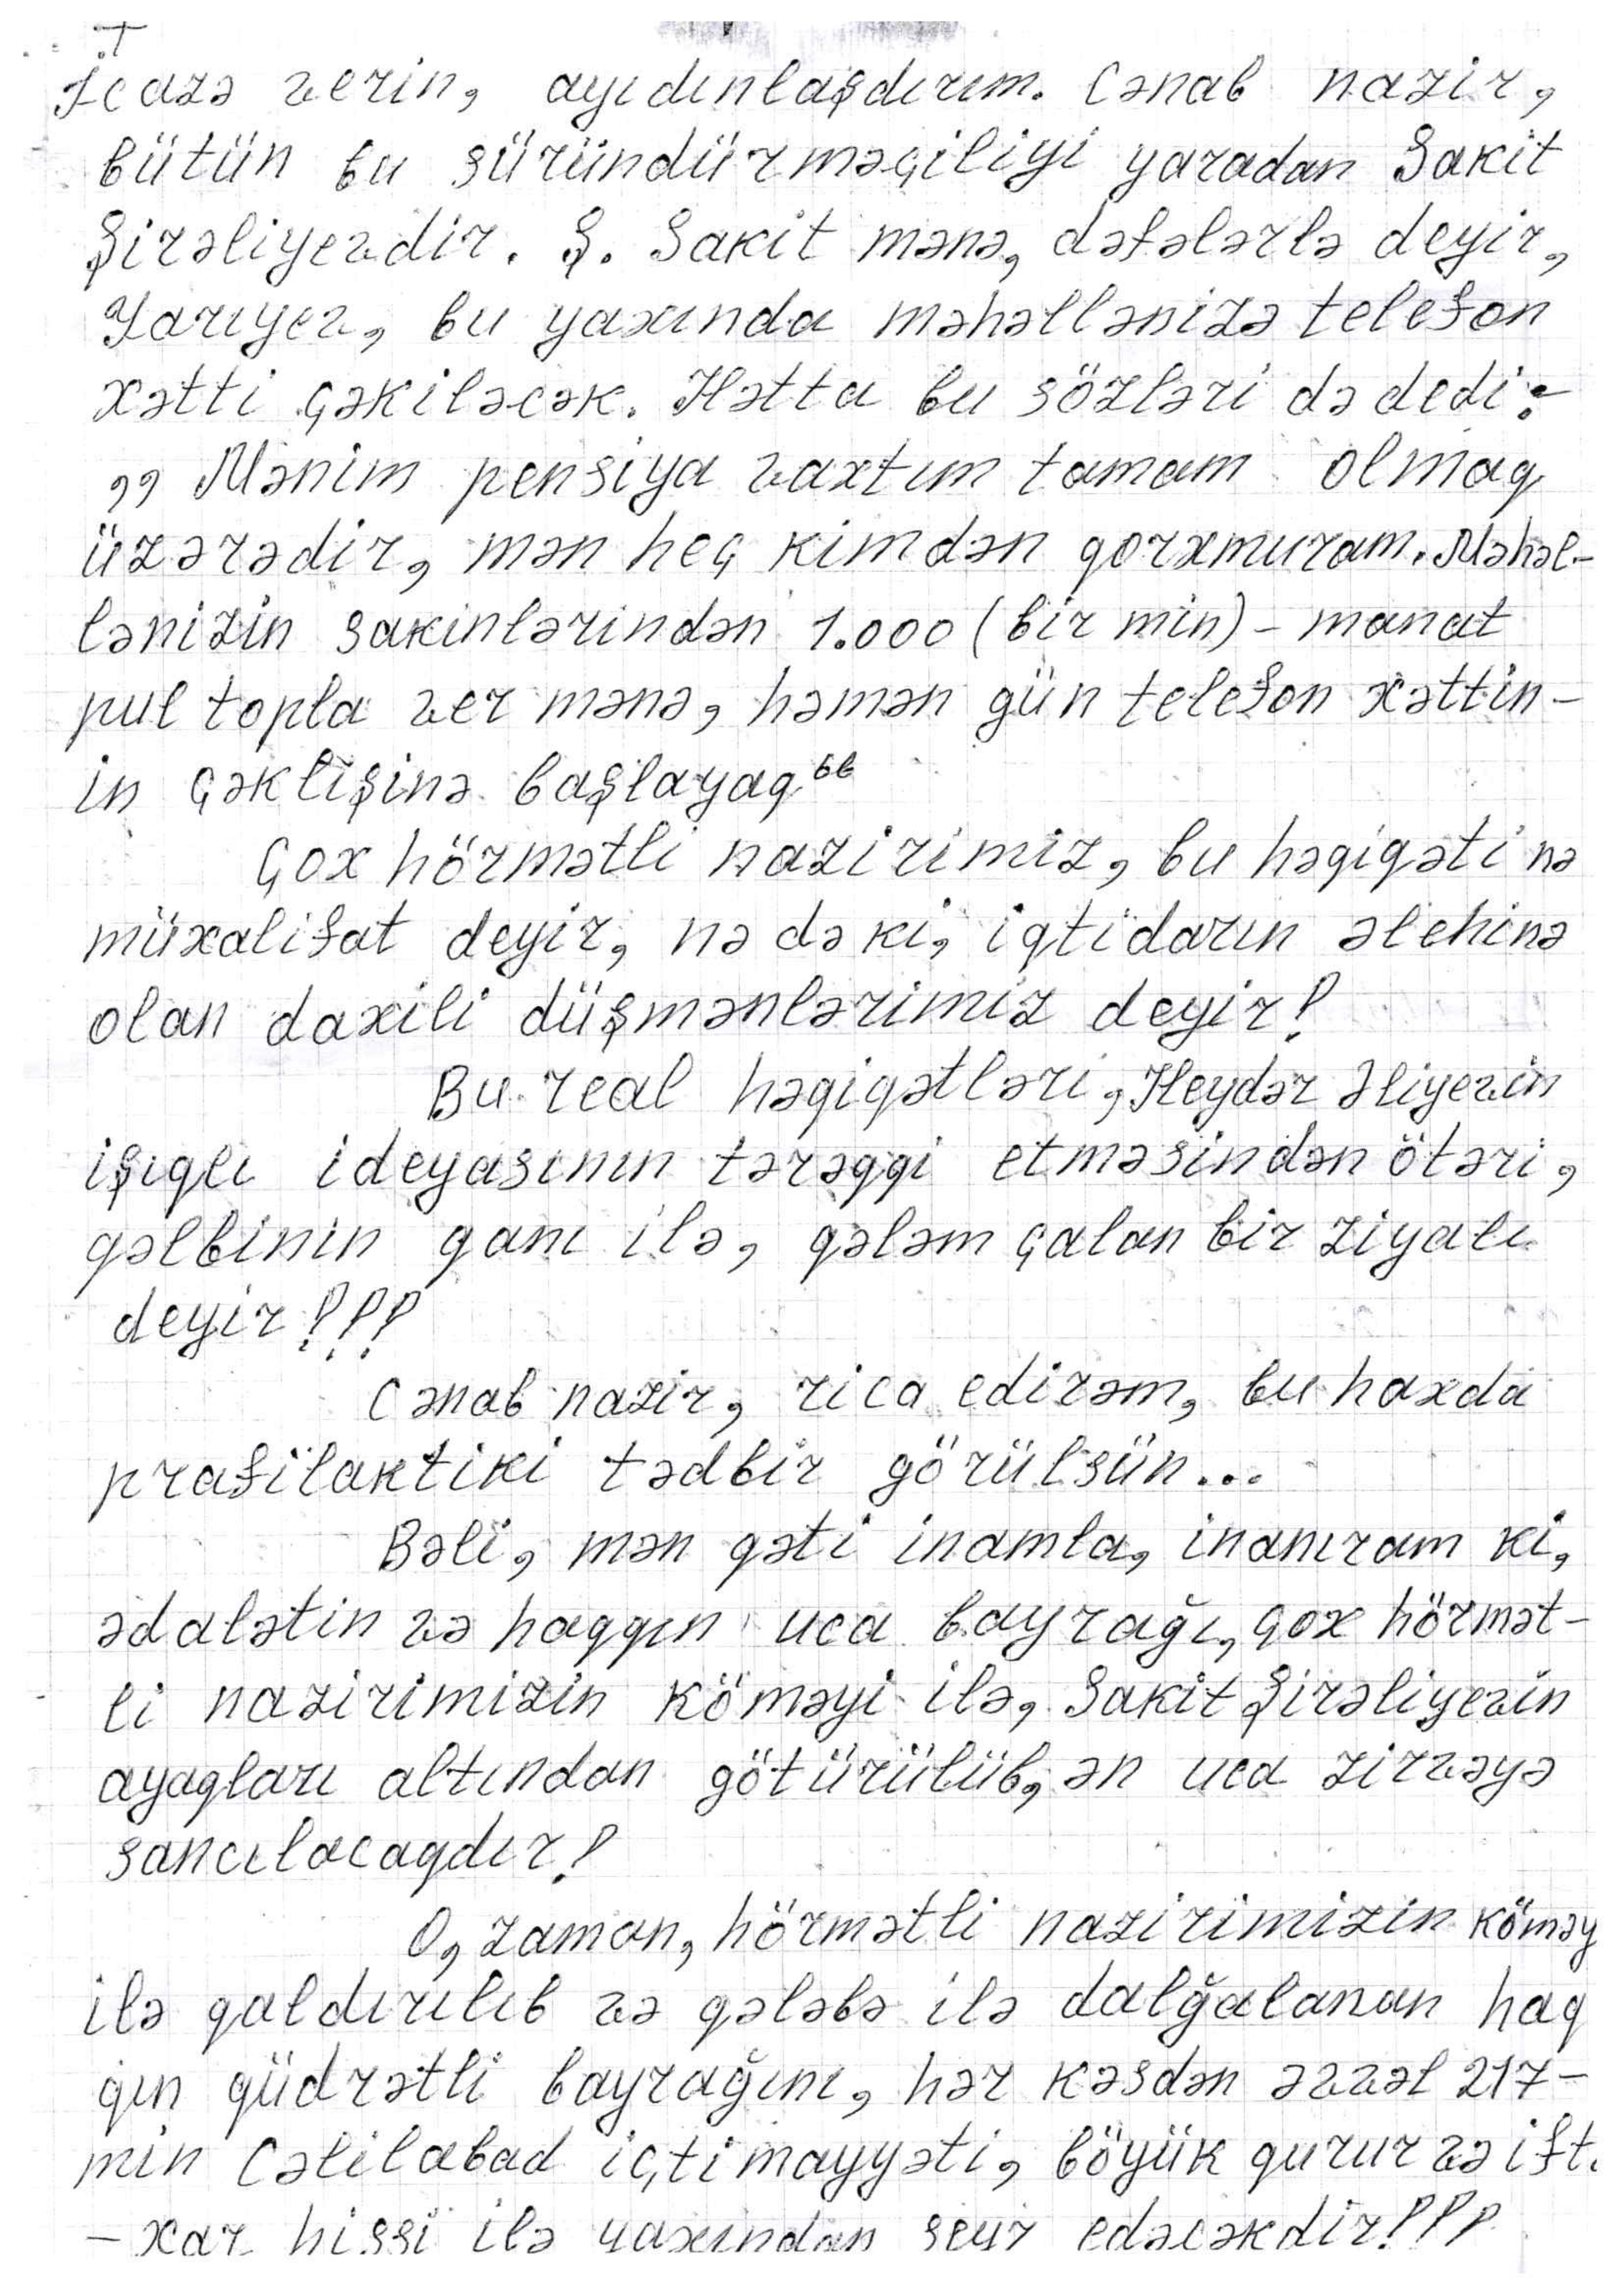 İcazə verin, ayıdınlaşdırım. Cənab nazir,
bütün bu süründürməçiliyi yaradan Sakit
Şirəliyevdir. Ş. Sakit mənə, dəfələrlə deyir,
Yarıyev, bu yaxında məhəllənizə telefon
xətti çəkiləcək. Hətta bu sözləri də dedi:-
,, Mənim pensiya vaxtım tamam olmaq
üzərədir, mən heç kimdən qorxmuram. Məhəl-
lənizin sakinlərindən 1.000 (bir min) - manat
pul topla ver mənə, həmən gün telefon xəttin-
in çəklişinə başlayaq"
Çox hörmətli nazirimiz, bu həqiqəti nə
müxalifat deyir, nə də ki, iqtidarın əlehinə
olan daxili düşmənlərimiz deyir!
Bu real həqiqətləri, Heydər Əliyevin
işıqlı ideyasının tərəqqi etməsindən ötəri,
qəlbinin qanı ilə, qələm çalan bir ziyalı
deyir!!!
Cənab nazir, rica edirəm, bu haxda
prafilaktiki tədbir görülsün...
Bəli, mən qəti inamla, inanıram ki,
ədalətin və haqqın uca bayrağı, çox hörmət-
li nazirimizin köməyi ilə, Sakit Şirəliyevin
ayaqları altından götürülüb, ən uca zirvəyə
sancılacaqdır!
O, zaman, hörmətli nazirimizin köməy
ilə qaldırılıb və qələbə ilə dalğalanan haq
qın qüdrətli bayrağını, hər kəsdən əvvəl 217-
min Cəlilabad içtimayyəti, böyük qurur və ift.
- xar hissi ilə yaxından seyr edəcəkdir!!!